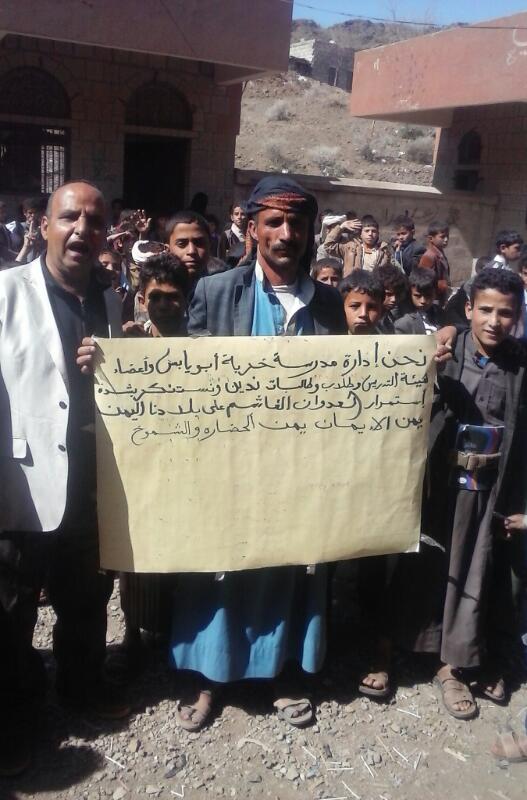 نحن إدارة مدرسة خربة أبو يابس وأعضاء
هيئة التدريس وطلاب وطالبات ندين ونستنكر بشدة
إستمرار العدوان الغاشم على بلادنا اليمن
يمن الإيمان يمن الحضاره والشموخ